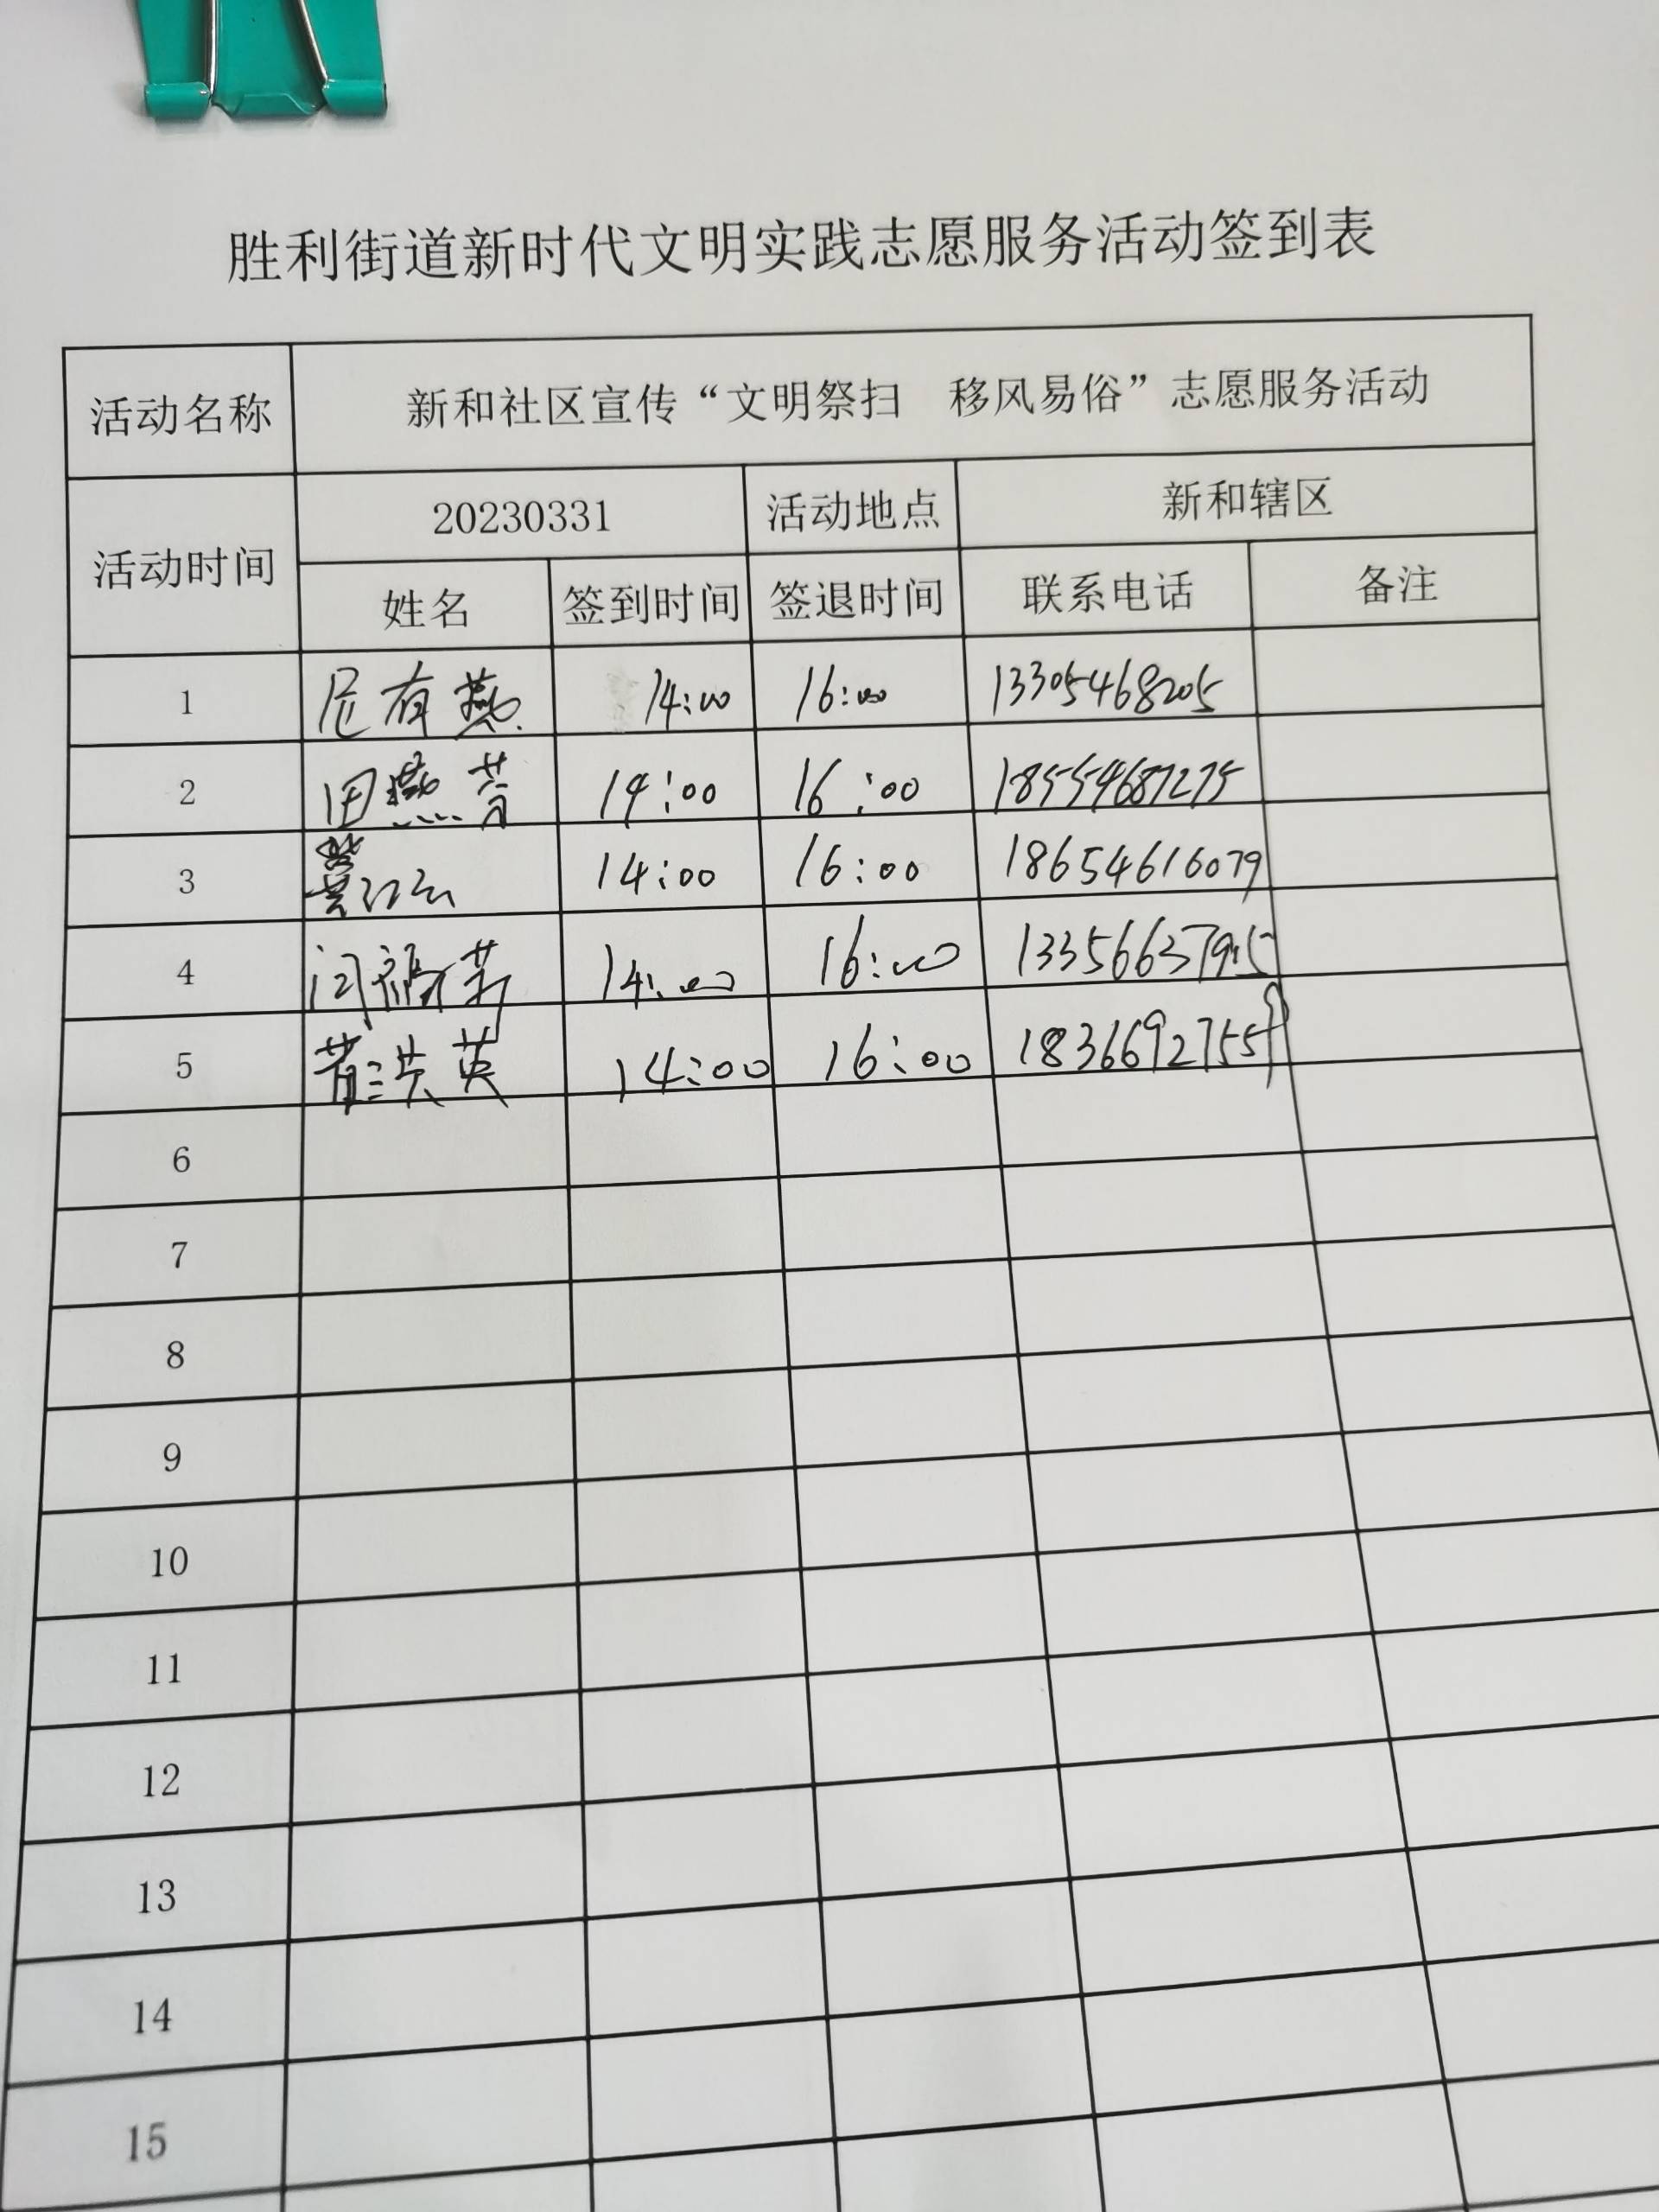 胜利街道新时代文明实践志愿服务活动签到表
活动名称 新和社区宣传“文明祭扫 移风易俗”志愿服务活动
活动时间 20230331 活动地点 新和辖区
姓名 签到时间 签退时间 联系电话 备注
1 尼有燕 14:00 16:00 13305468205
2 田燕芳 14:00 16:00 18554687275
3 14:00 16:00 18654616079
4 14:00 16:00 13356637915
5 洪英 14:00 16:00 18366927559
6
7
8
9
10
11
12
13
14
15